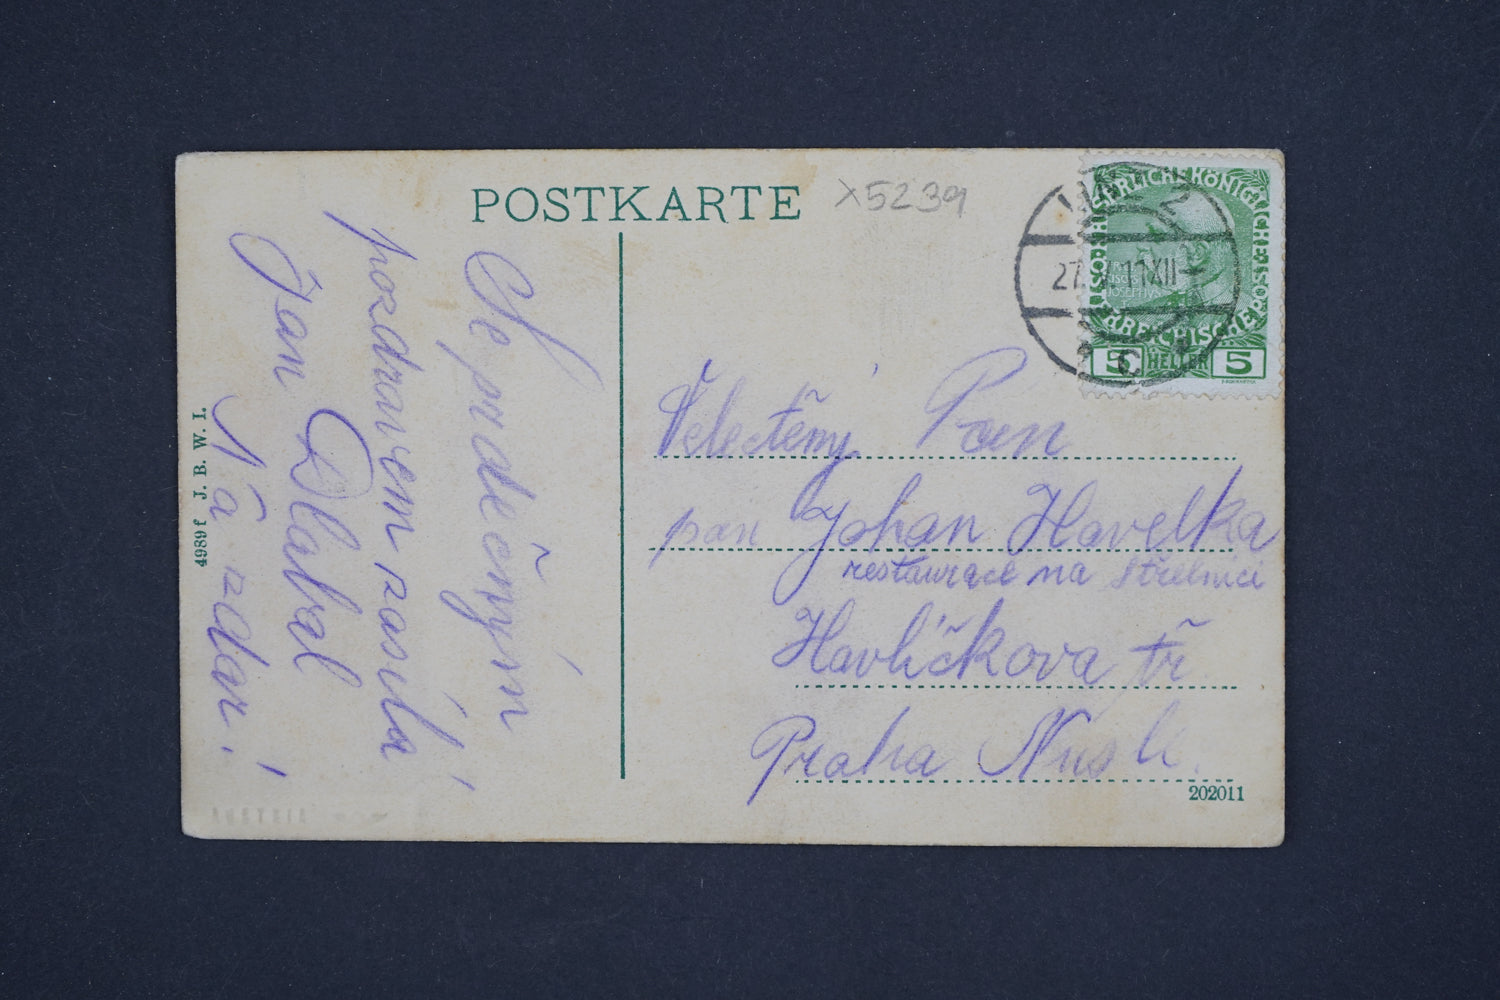 POSTKARTE
x5239
Se srdečným
pozdravem zasílá
Jan Dlabal
Na zdar!
4989f J. B. W. I.
KAISERLICHE KÖNIGLICHE
ÖSTERREICHISCHE POST
5 HELLER 5
27. 11 XII
2
C
Velectěný Pan
pan Johan Havelka
restaurace na Střelnici
Havlíčkova tř
Praha Nusle.
202011
AUSTRIA